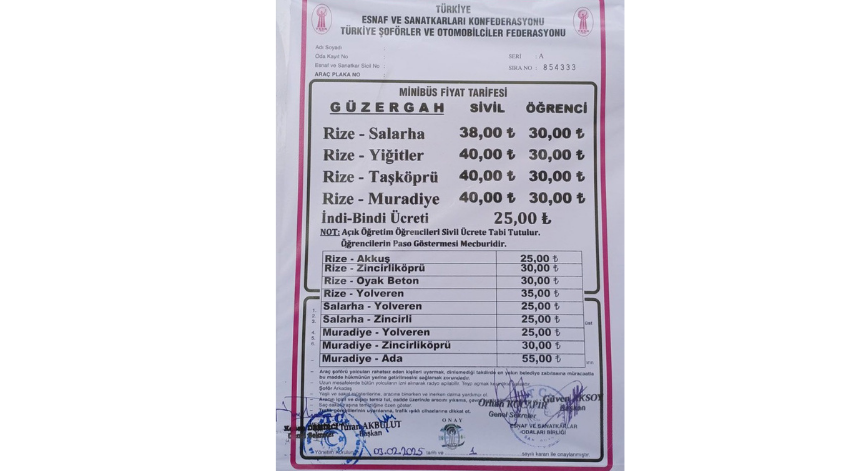 TÜRKİYE
ESNAF VE SANATKARLARI KONFEDERASYONU
TÜRKİYE ŞOFÖRLER VE OTOMOBİLCİLER FEDERASYONU
Adı Soyadı
Oda Kayıt No
Esnaf ve Sanatkar Sicil No :
ARAÇ PLAKA NO
SERİ : A
SIRA NO : 854333
MİNİBÜS FİYAT TARİFESİ
GÜZERGAH SİVİL ÖĞRENCİ
Rize - Salarha 38,00 ₺ 30,00 ₺
Rize - Yiğitler 40,00 ₺ 30,00 ₺
Rize - Taşköprü 40,00 ₺ 30,00 ₺
Rize - Muradiye 40,00 ₺ 30,00 ₺
İndi-Bindi Ücreti 25,00 ₺
NOT: Açık Öğretim Öğrencileri Sivil Ücrete Tabi Tutulur.
Öğrencilerin Paso Göstermesi Mecburidir.
Rize - Akkuş 25,00 ₺
Rize - Zincirliköprü 30,00 ₺
Rize - Oyak Beton 30,00 ₺
Rize - Yolveren 35,00 ₺
Salarha - Yolveren 25,00 ₺
Salarha - Zincirli 25,00 ₺
Muradiye - Yolveren 25,00 ₺
Muradiye - Zincirliköprü 30,00 ₺
Muradiye - Ada 55,00 ₺
Orhan KOÇAPIR Güven AKSOY
Genel Sekreter Başkan
Turan AKBULUT
Başkan
Genel Sekreter
ONAY
ESNAF VE SANATKARLAR
ODALARI BİRLİĞİ
03.02.2025 tarih ve 1 sayılı kararı ile onaylanmıştır.